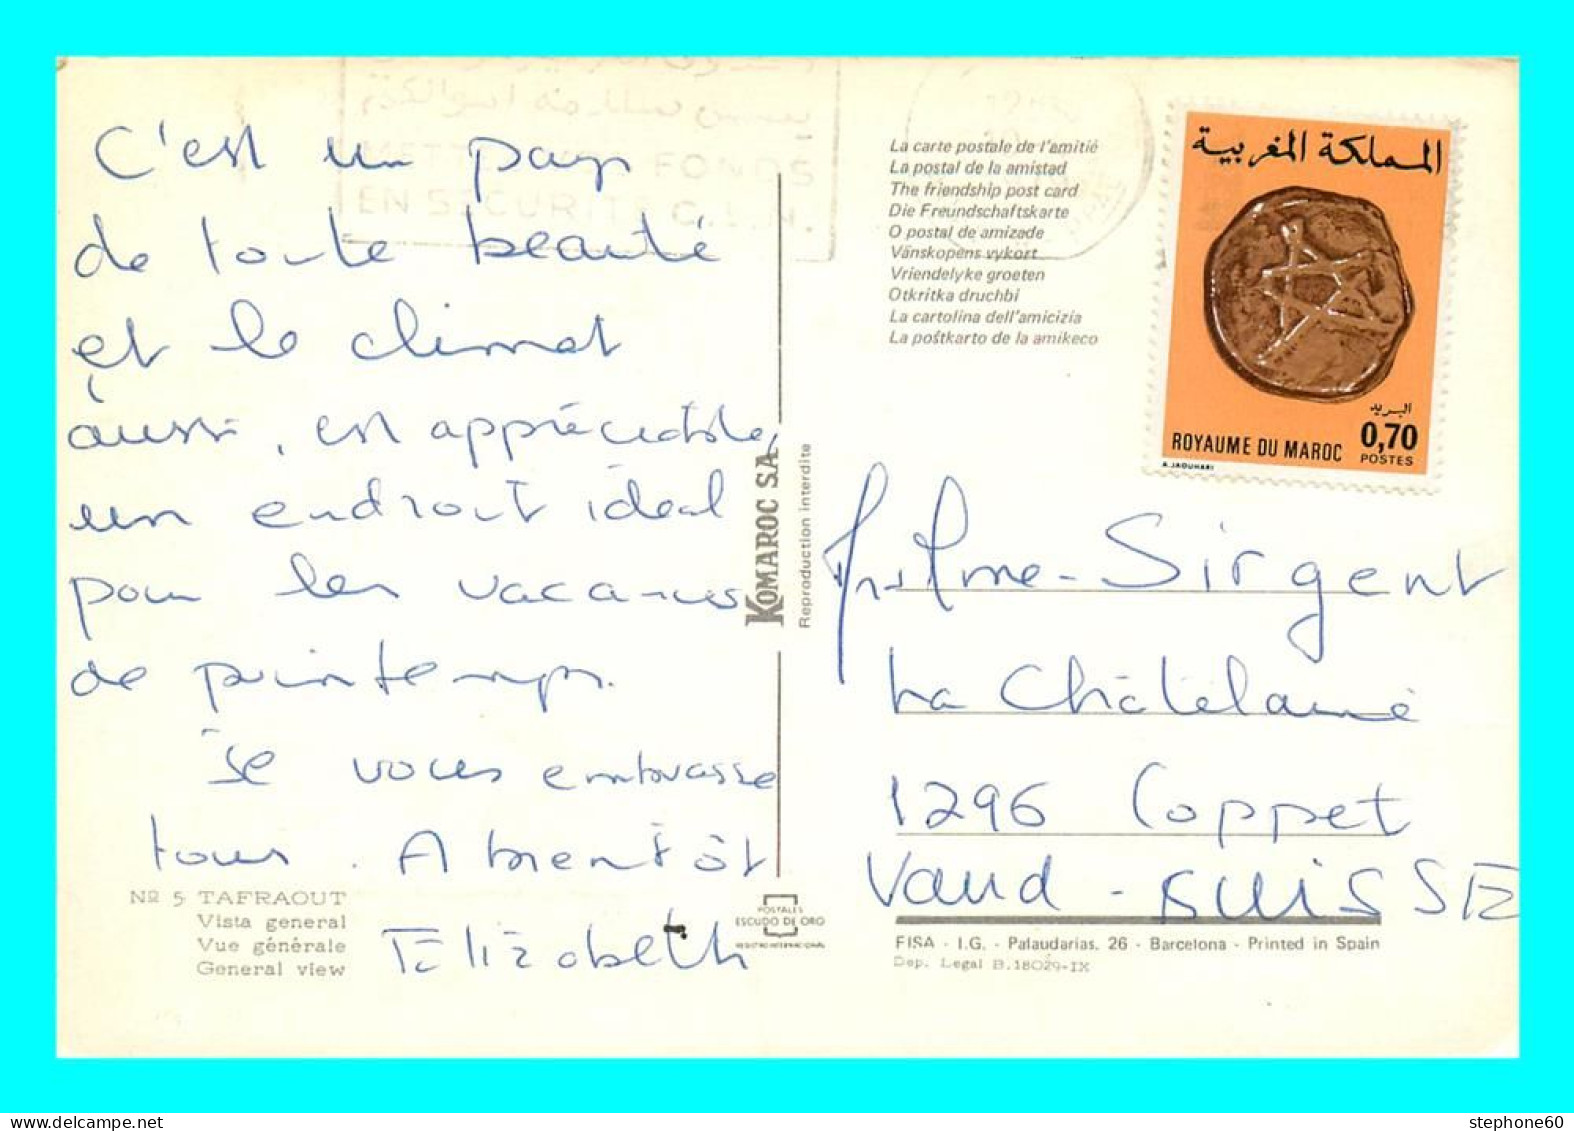 C'est un pays
de toute beauté
et le climat
aussi, est appréciable,
un endroit idéal
pour les vacances
de printemps.
Je vous embrasse
tous. A bientôt
Elizabeth
Nº 5 TAFRAOUT
Vista general
Vue générale
General view
FONDS
EN SECURITE C.E.N.
KOMAROC SA
Reproduction interdite
POSTALES
ESCUDO DE ORO
REGISTRO INTERNACIONAL
La carte postale de l'amitié
La postal de la amistad
The friendship post card
Die Freundschaftskarte
O postal de amizade
Vänskopens vykort
Vriendelyke groeten
Otkritka druchbi
La cartolina dell'amicizia
La poŝtkarto de la amikeco
المملكة المغربية
البريد
0,70
ROYAUME DU MAROC
POSTES
A. JAOUHARI
Mme Sirgent
La Châtelaine
1296 Coppet
Vaud - SUISSE
FISA - I.G. - Palaudarias, 26 - Barcelona - Printed in Spain
Dep. Legal B. 18029-IX
stephone60